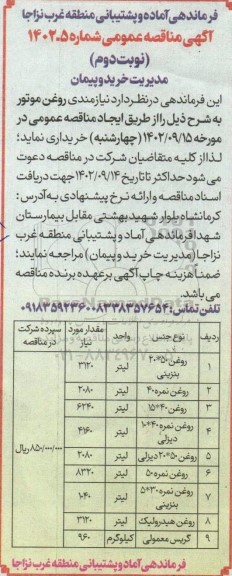 فرماندهی آماده و پشتیبانی منطقه غرب نزاجا
آگهی مناقصه عمومی شماره ۱۴۰۲.۵
(نوبت دوم)
مدیریت خرید و پیمان
این فرماندهی در نظر دارد نیازمندی روغن موتور
به شرح ذیل را از طریق ایجاد مناقصه عمومی در
مورخه ۱۴۰۲/۰۹/۱۵ (چهارشنبه) خریداری نماید؛
لذا از کلیه متقاضیان شرکت در مناقصه دعوت
می شود حداکثر تا تاریخ ۱۴۰۲/۰۹/۱۴ جهت دریافت
اسناد مناقصه و ارائه نرخ پیشنهادی به آدرس:
کرمانشاه بلوار شهید بهشتی مقابل بیمارستان
شهدا فرماندهی آماد و پشتیبانی منطقه غرب
نزاجا (مدیریت خرید و پیمان) مراجعه نمایند؛
ضمنا هزینه چاپ آگهی بر عهده برنده مناقصه
می باشد.
تلفن تماس: ۰۸۳۳۸۳۵۷۶۵۴-۰۹۱۸۳۵۹۲۳۶۰
ردیف نوع جنس واحد مقدار مورد نیاز سپرده شرکت در مناقصه
۱ روغن ۵۰*۲۰ بنزینی لیتر ۳۱۲۰ ۸۵۰/۰۰۰/۰۰۰ ریال
۲ روغن نمره ۴۰ لیتر ۲۰۸۰
۳ روغن ۴۰*۱۵ لیتر ۶۲۴۰
۴ روغن نمره ۴۰*۱۰ دیزلی لیتر ۴۱۶۰
۵ روغن ۵۰*۲۰ دیزلی لیتر ۲۰۸۰
۶ روغن نمره ۵۰ لیتر ۸۳۲۰
۷ روغن نمره ۳۰*۵ بنزینی لیتر ۱۰۴۰
۸ روغن هیدرولیک لیتر ۳۱۲۰
۹ گریس معمولی کیلوگرم ۹۶۰
فرماندهی آماده و پشتیبانی منطقه غرب نزاجا